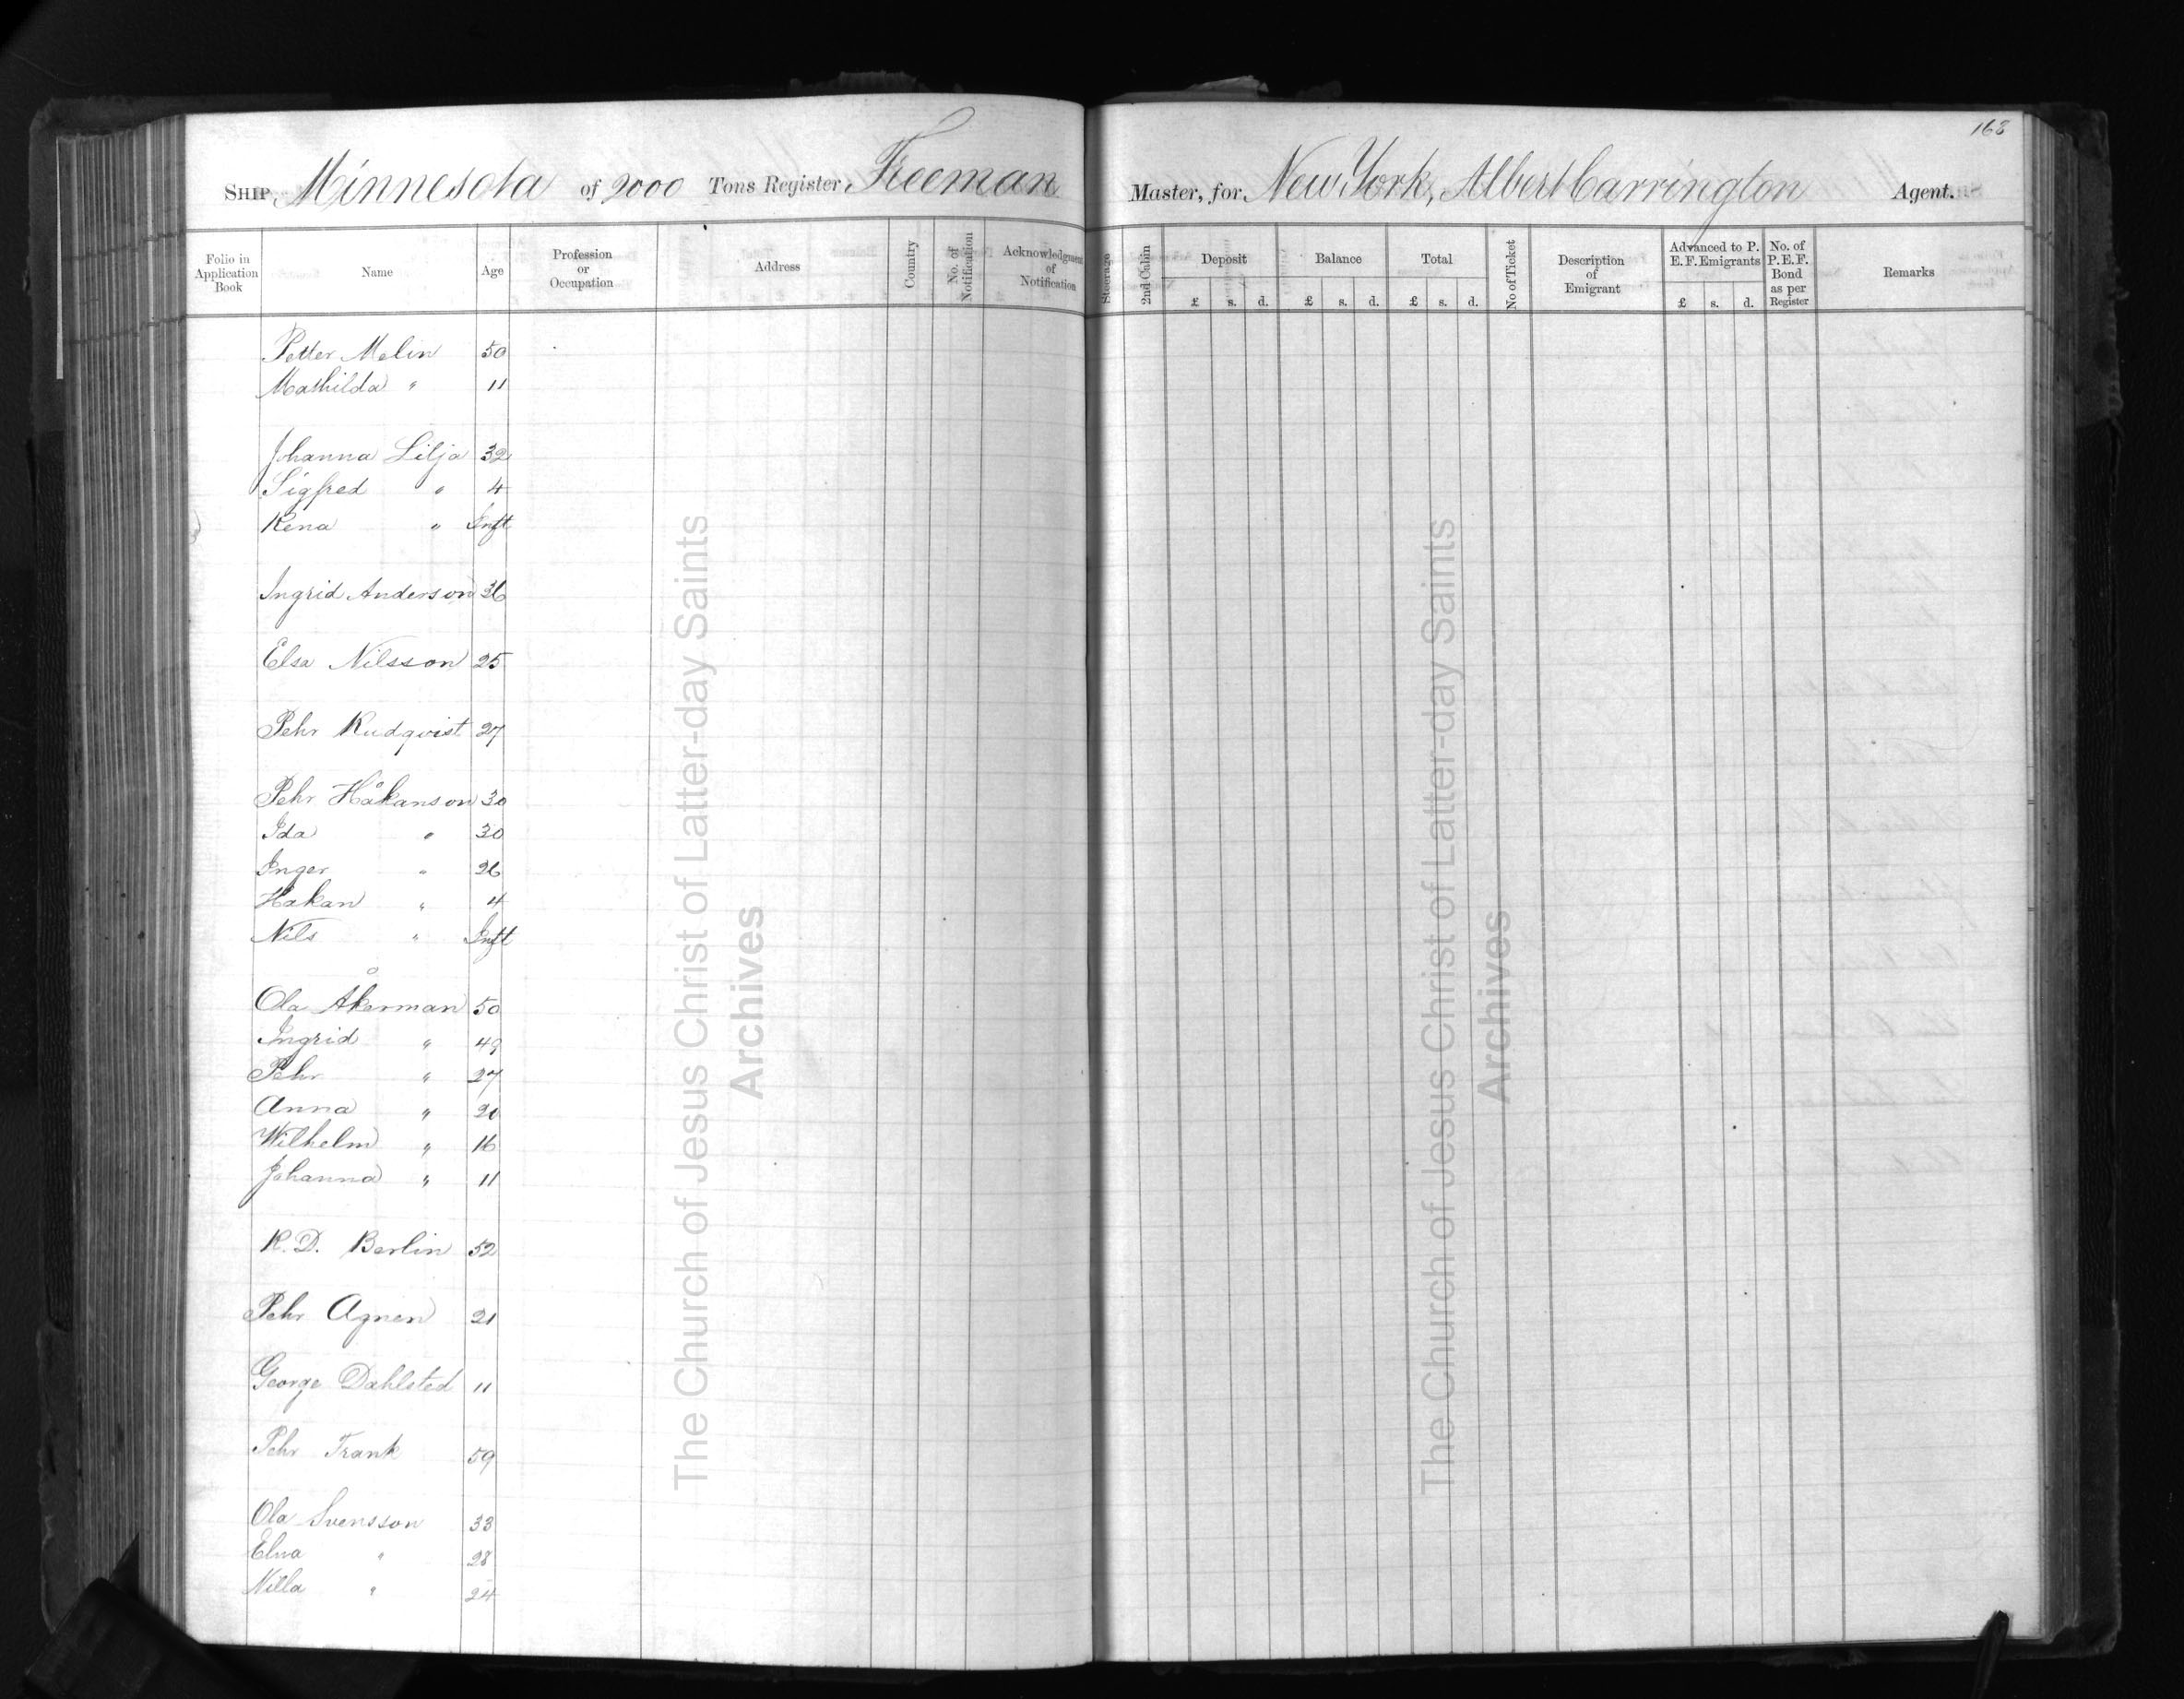 163
SHIP Minnesota of 2000 Tons Register Freeman Master, for New York, Albert Carrington Agent.
Folio in Application Book | Name | Age | Profession or Occupation | Address | Country | No. of Notification | Acknowledgment of Notification | Steerage | 2nd Cabin | Deposit £ s. d. | Balance £ s. d. | Total £ s. d. | No of Ticket | Description of Emigrant | Advanced to P. E. F. Emigrants £ s. d. | No. of P.E.F. Bond as per Register | Remarks
Petter Melin 50
Mathilda " 11
Johanna Lilja 32
Sigfred " 4
Rena " Inft
Ingrid Anderson 36
Elsa Nilsson 25
Pehr Rudqvist 27
Pehr Håkanson 30
Ida " 30
Inger " 26
Hakan " 4
Nils " Inft
Ola Åkerman 50
Ingrid " 49
Pehr " 27
Anna " 20
Wilhelm " 16
Johanna " 11
R. D. Berlin 52
Pehr Agnen 21
George Dahlsted 11
Pehr Frank 59
Ola Svensson 33
Elna " 28
Nilla " 24
The Church of Jesus Christ of Latter-day Saints
Archives
The Church of Jesus Christ of Latter-day Saints
Archives